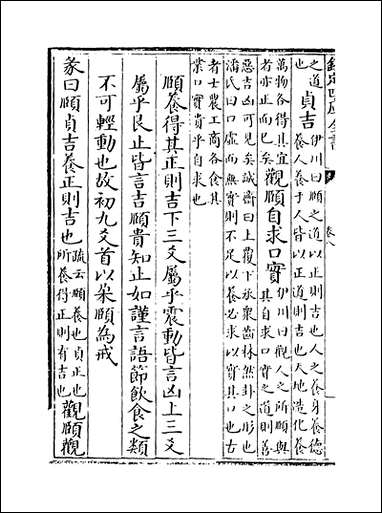 欽定四庫全書
卷八
之道
也
貞吉
伊川曰頤之道以正則吉也人之養身養德
養人養于人皆以正道則吉也天地造化養
萬物各得其宜
者亦正而已矣
觀頤自求口實
伊川曰觀人之所頤與
其自求口實之道則善
惡吉凶可見矣誠齋曰上覆下承衆齒林然卦之形也
潘氏曰口虛而無實則不足以養必求以實其口也古
者士農工商各食其
業口實貴乎自求也
頤養得其正則吉下三爻屬乎震動皆言凶上三爻
屬乎艮止皆言吉頤貴知止如謹言語節飲食之類
不可輕動也故初九爻首以朶頤為戒
彖曰頤貞吉養正則吉也
疏云頤養也貞正也
所養得正則有吉也
觀頤觀